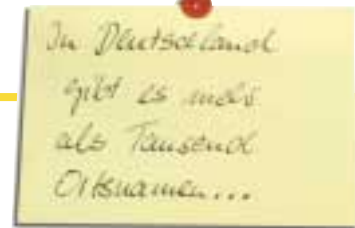 In Deutschland
gibt es mehr
als Tausend
Ortsnamen...